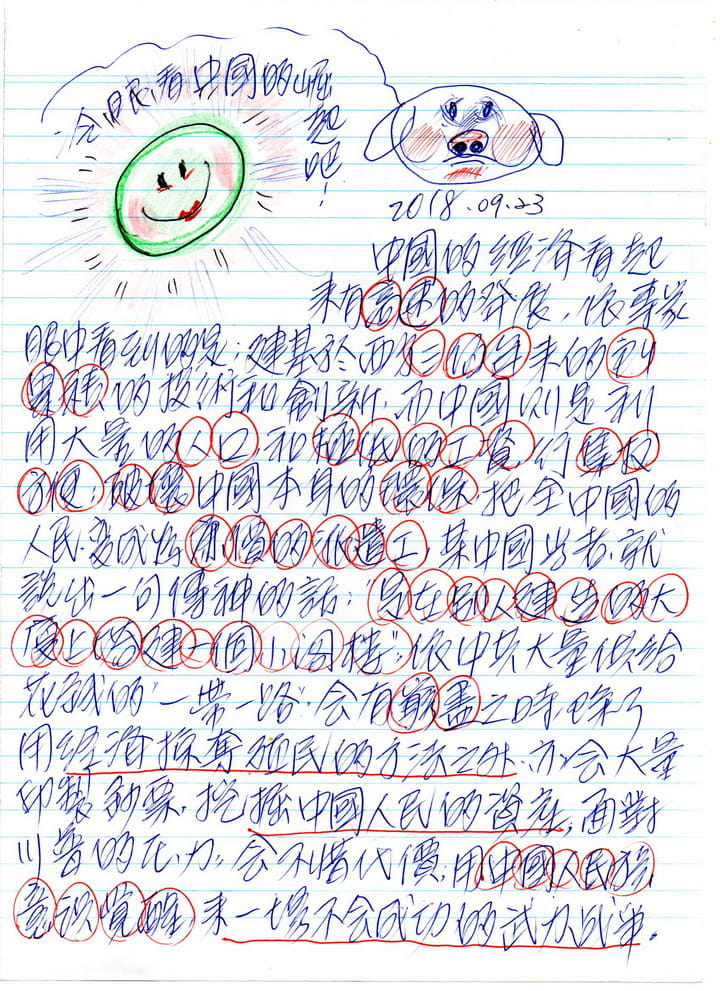 今日民看中國的崛起吧!
2018.09.23
中國的經濟看起
來有高速的發展,依專家
眼中看到的是:建基於西方三百年來的
累積的技術和創新,而中國則是利
用大量的人口,和極低的工資,行
方便;破壞中國本身的環保,把全中國的
人民,變成為廉價的,某中國學者,就
說出一句傳神的話:"是在別人建出的大
廈上搭建一個小閣樓";依中共大量
"一帶一路",会有窮盡之時,除了
用經濟掠奪殖民的方法之外,亦会大量
印製鈔票,挖掘中國人民的資產,面對
川普的压力,会不惜代價;用中國人民
意識覺醒,來一場不会成功的武力战争。